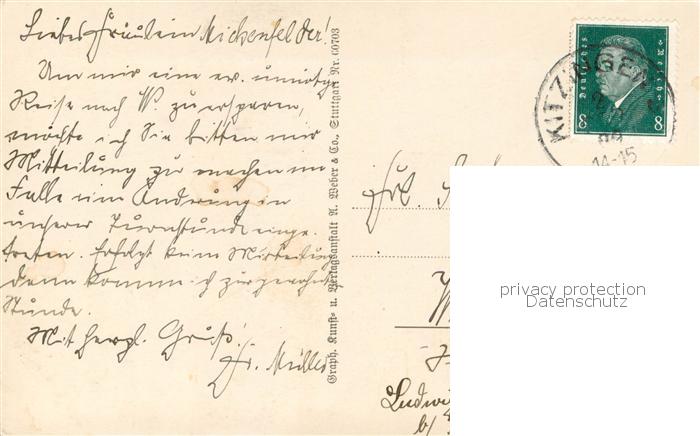 Liebes Fräulein Mickenfelder!
Um mir eine ev. unnötige
Reise nach W. zu ersparen,
möchte ich Sie bitten mir
Mitteilung zu machen im
Falle eine Änderung in
unserer Turnstunde einge-
treten. Erfolgt keine Mitteilung
dann komme ich zur gewohnten
Stunde.
Mit herzl. Gruß!
Fr. Müller
Graph. Kunst- u. Verlagsanstalt A. Weber & Co., Stuttgart Nr. 60703
Deutsches Reich
8 8
KITZINGEN
14-15
Frl.
W
Ludwi
b/
privacy protection
Datenschutz